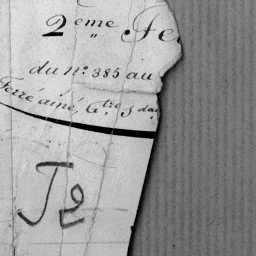 2eme Fe
du n.º 385 au
Ferré ainé, G.tre s da
J2